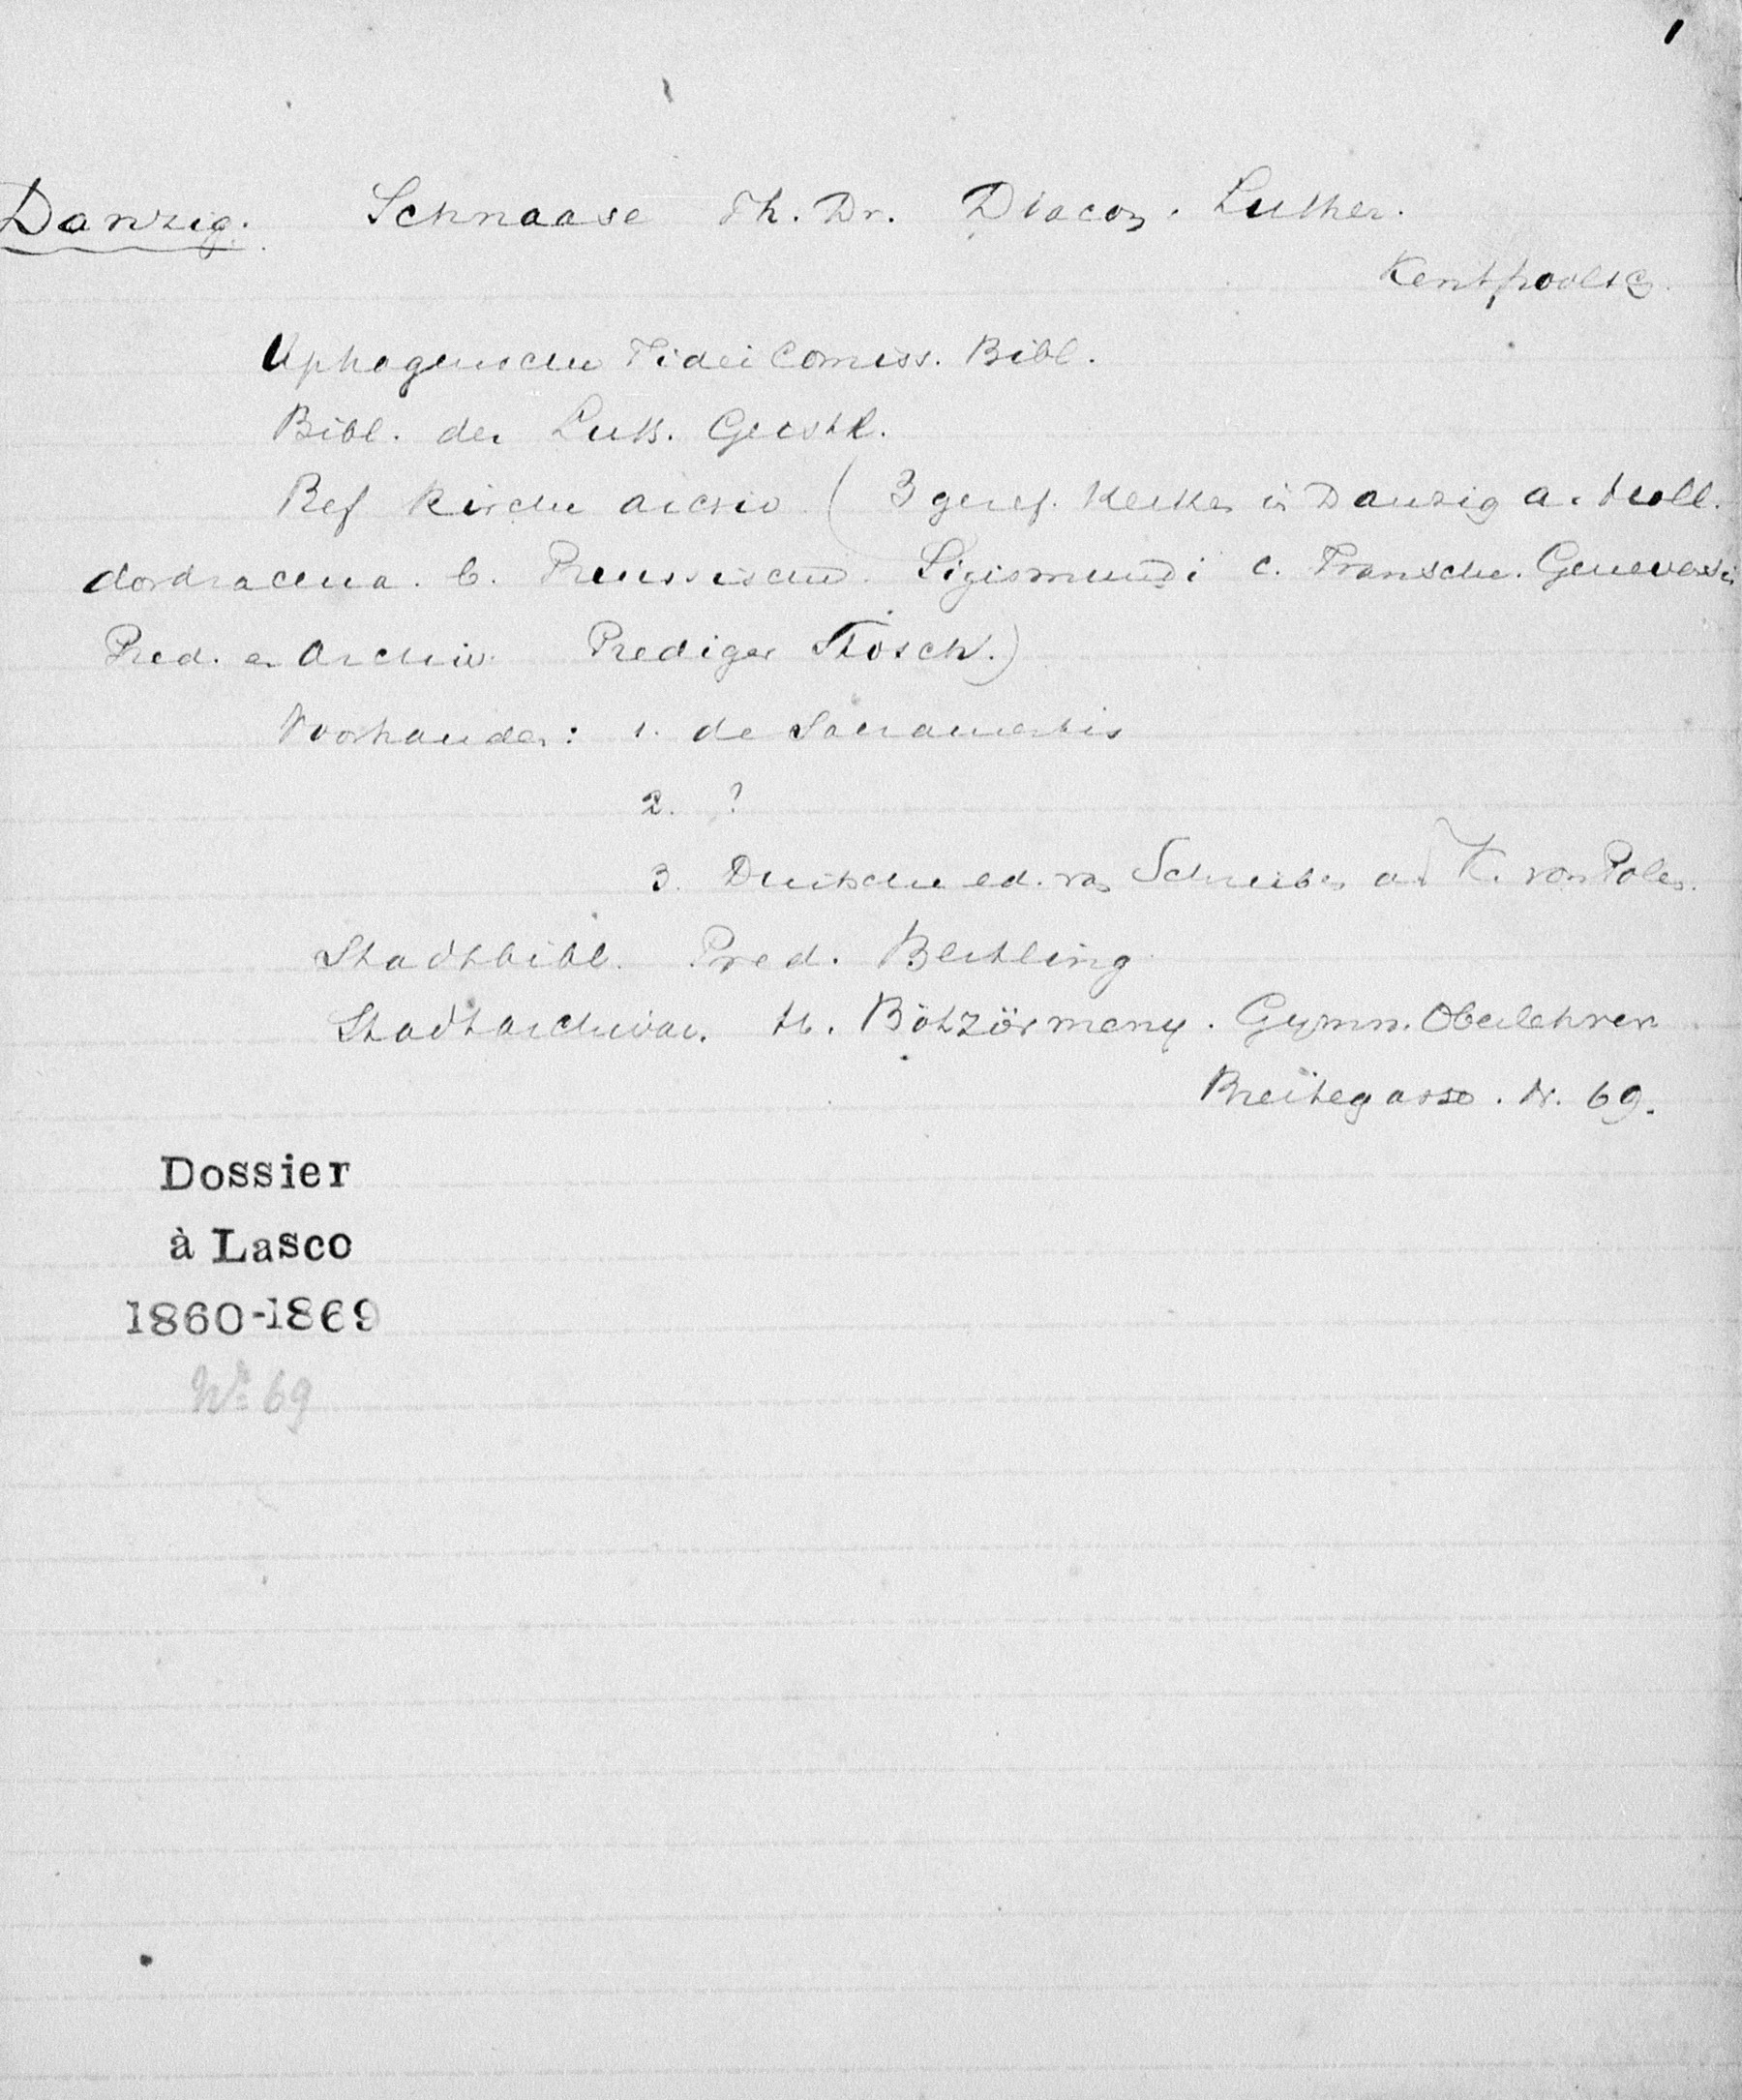 1
Danzig. Schnaase Th. Dr. Diacon. Luther.
Kent poolsch.
Uphagensche Fidei Comiss. Bibl.
Bibl. der Luth. Geistl.
Ref Kirche archiv (3 geref. Kerken in Danzig a. Holl.
dordracena. b. Preussische. Sigismundi c. Fransche. Genevensis
Pred. en Archiv. Prediger Stosch.)
Voorhanden: 1. de Sacramentis
2. ?
3. Duitsche ed. van Schreiben a. d. K. von Polen.
Stadtbibl. Pred. Bertling
Stadtarchivar. H. Bötzörmeny. Gymn. Oberlehrer
Breitegasse. N. 69.
Dossier
à Lasco
1860-1869
No 69